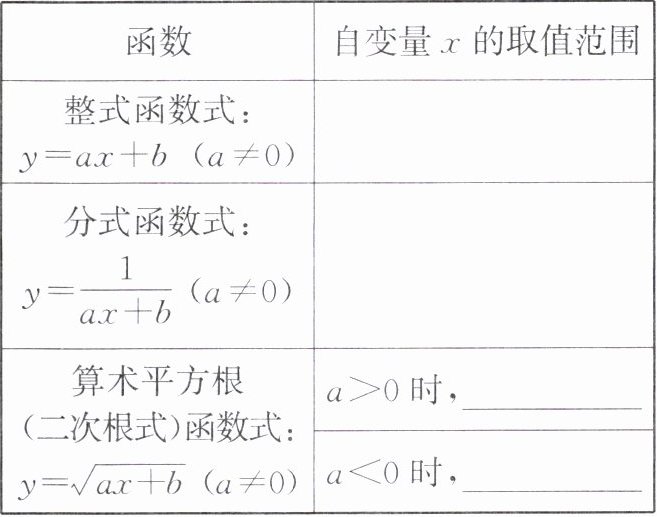 函数
自变量 x 的取值范围
整式函数式:
y=ax+b (a≠0)
分式函数式:
y=1/(ax+b) (a≠0)
算术平方根
(二次根式)函数式:
y=√(ax+b) (a≠0)
a>0 时,________
a<0 时,________